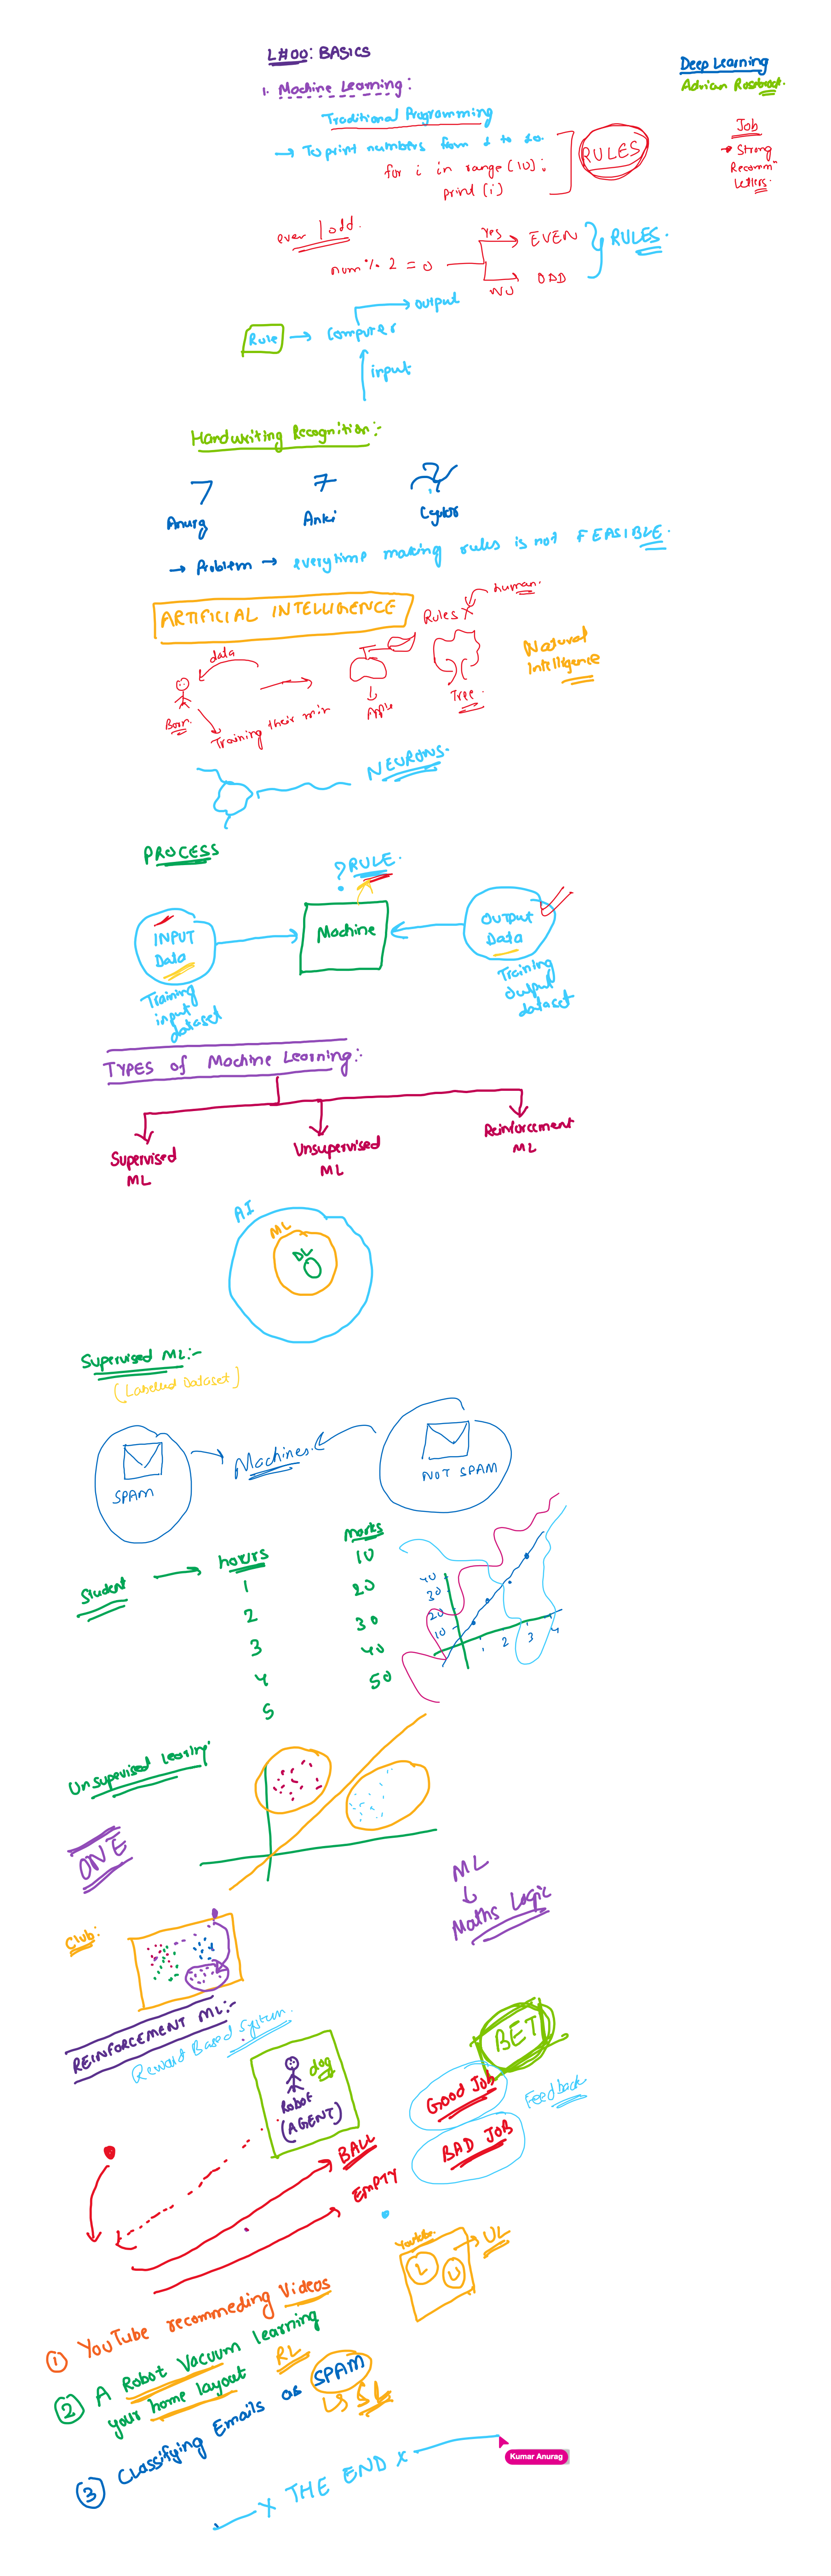 L#00: BASICS
Deep Learning
Adrian Rosebrock.
1. Machine Learning:
Traditional Programming
→ To print numbers from 1 to 10.
for i in range (10):
print (i)
RULES
Job
→ Strong
Recomm"
letters.
even | odd.
num % 2 = 0
Yes
EVEN
NO
ODD
RULES.
output
Rule → Computer
input
Handwriting Recognition:-
7 7
Anurg Anki
→ Problem → everytime making rules is not FEASIBLE.
ARTIFICIAL INTELLIGENCE
Rules
human.
data
Natural
Intelligence
Born.
Training their
Apple
Tree.
NEURONS.
PROCESS
? RULE.
INPUT
Data
Machine
OUTPUT
Data
Training
input
dataset
Training
output
dataset
TYPES of Machine Learning:-
Supervised
ML
Unsupervised
ML
Reinforcement
ML
AI
ML
DL
Supervised ML:-
(Labelled Dataset)
SPAM
Machines.
NOT SPAM
Student → hours marks
1 10
2 20
3 30
4 40
5 50
40
30
20
10
1 2 3 4
Unsupervised Learning
ONE
ML
↓
Maths Logic
Club:
REINFORCEMENT ML:-
Reward Based System.
BET
dog
Robot
(AGENT)
Good Job
Feedback
BAD JOB
BALL
EMPTY
Youtube
L U
→ UL
① YouTube recommeding Videos
② A Robot Vacuum learning
your home layout RL
③ Classifying Emails as SPAM
↳ SL
x THE END x
Kumar Anurag